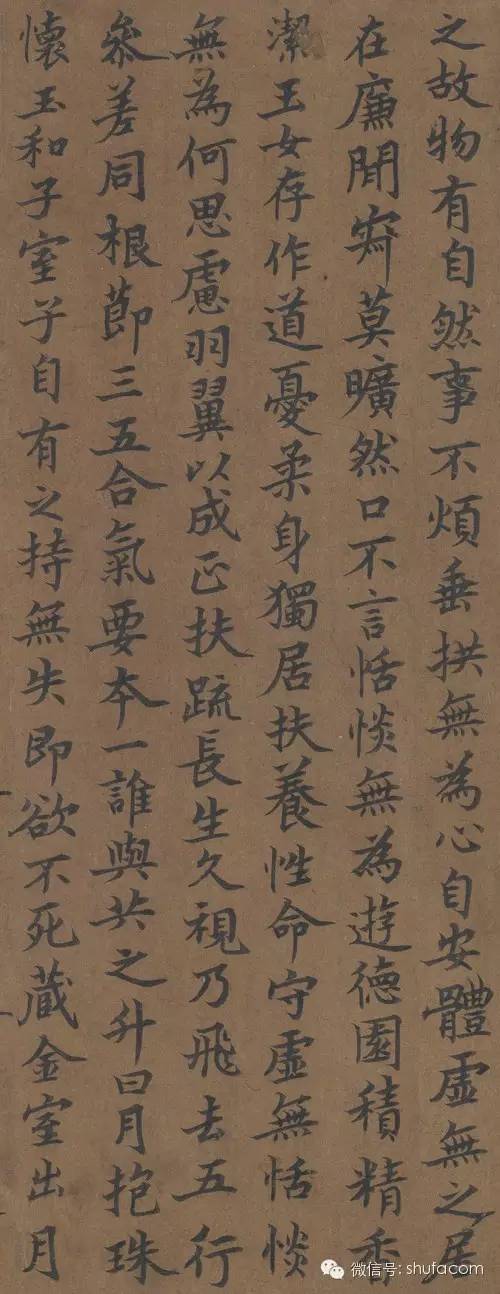 之故物有自然事不煩垂拱無為心自安體虛無之居
在廉閒𡨋莫曠然口不言恬惔無為遊德園積精香
潔玉女存作道憂柔身獨居扶養性命守虛無恬惔
無為何思慮羽翼以成正扶疏長生久視乃飛去五行
參差同根節三五合氣要本一誰與共之升日月抱珠
懷玉和子室子自有之持無失即欲不死藏金室出月
微信号: shufacom